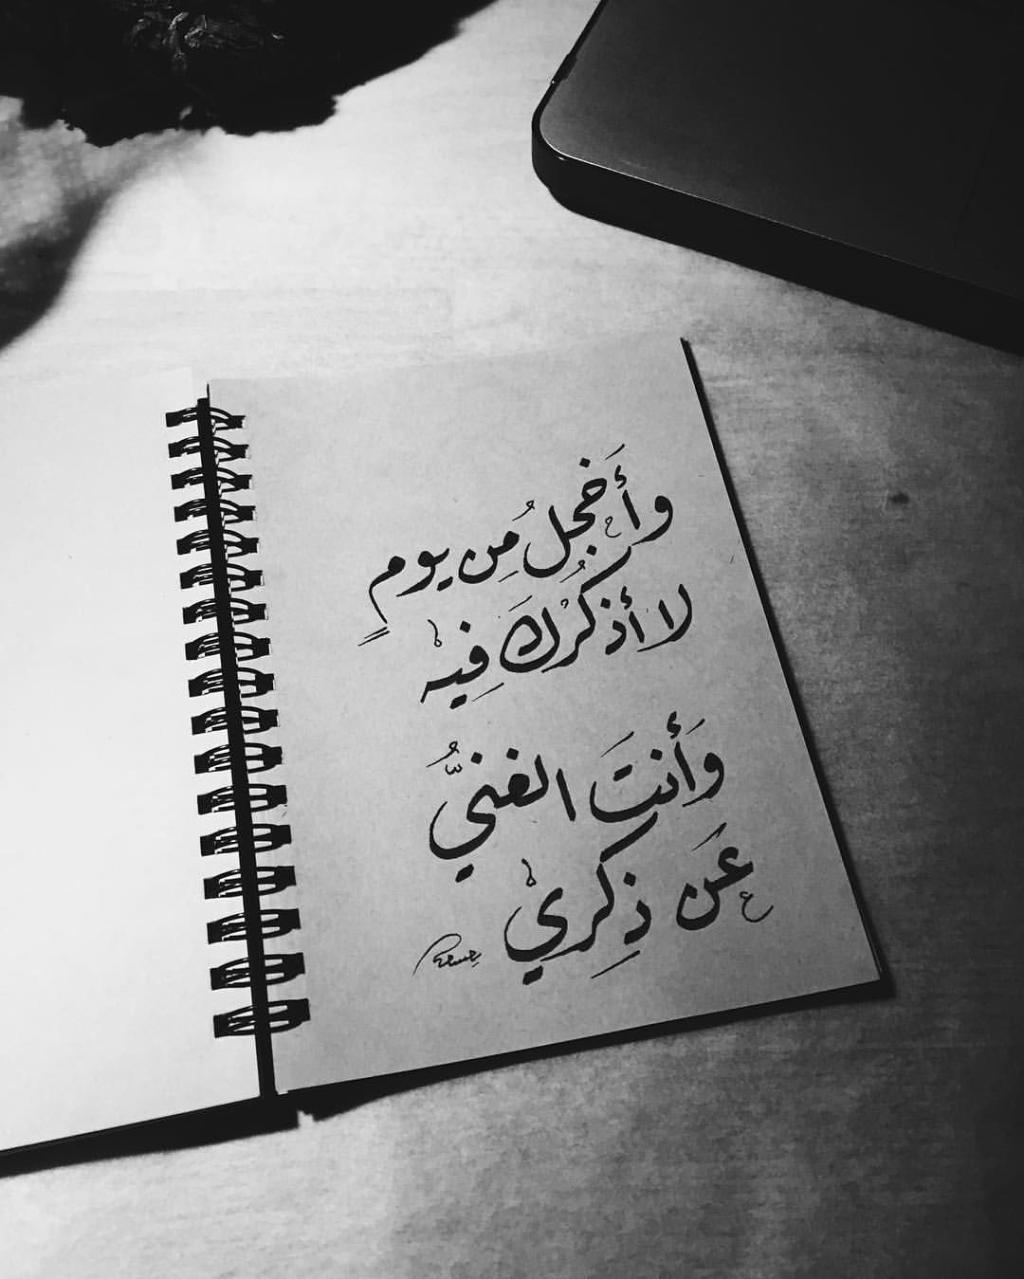 وأَخجلُ مِن يومٍ
لا أذكُرُكَ فِيه
وَأَنتَ الغنيُّ
عَن ذِكري